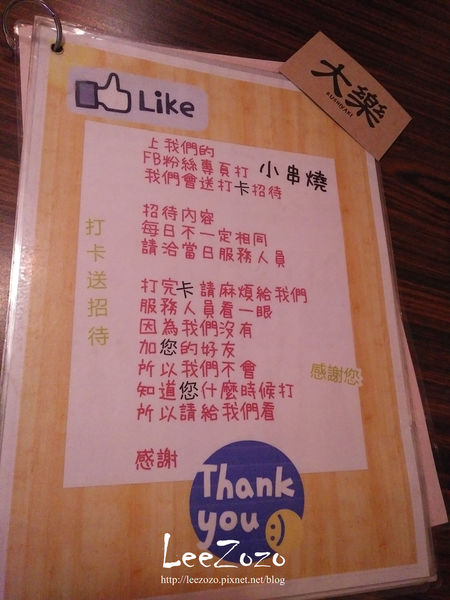 Like
大樂
KUSHIYAKI
上我們的
FB粉絲專頁打 小串燒
我們會送打卡招待
招待內容
每日不一定相同
請洽當日服務人員
打卡送招待
打完卡請麻煩給我們
服務人員看一眼
因為我們沒有
加您的好友
所以我們不會
知道您什麼時候打
所以請給我們看
感謝您
感謝
Thank
you
LeeZozo
http://leezozo.pixnet.net/blog